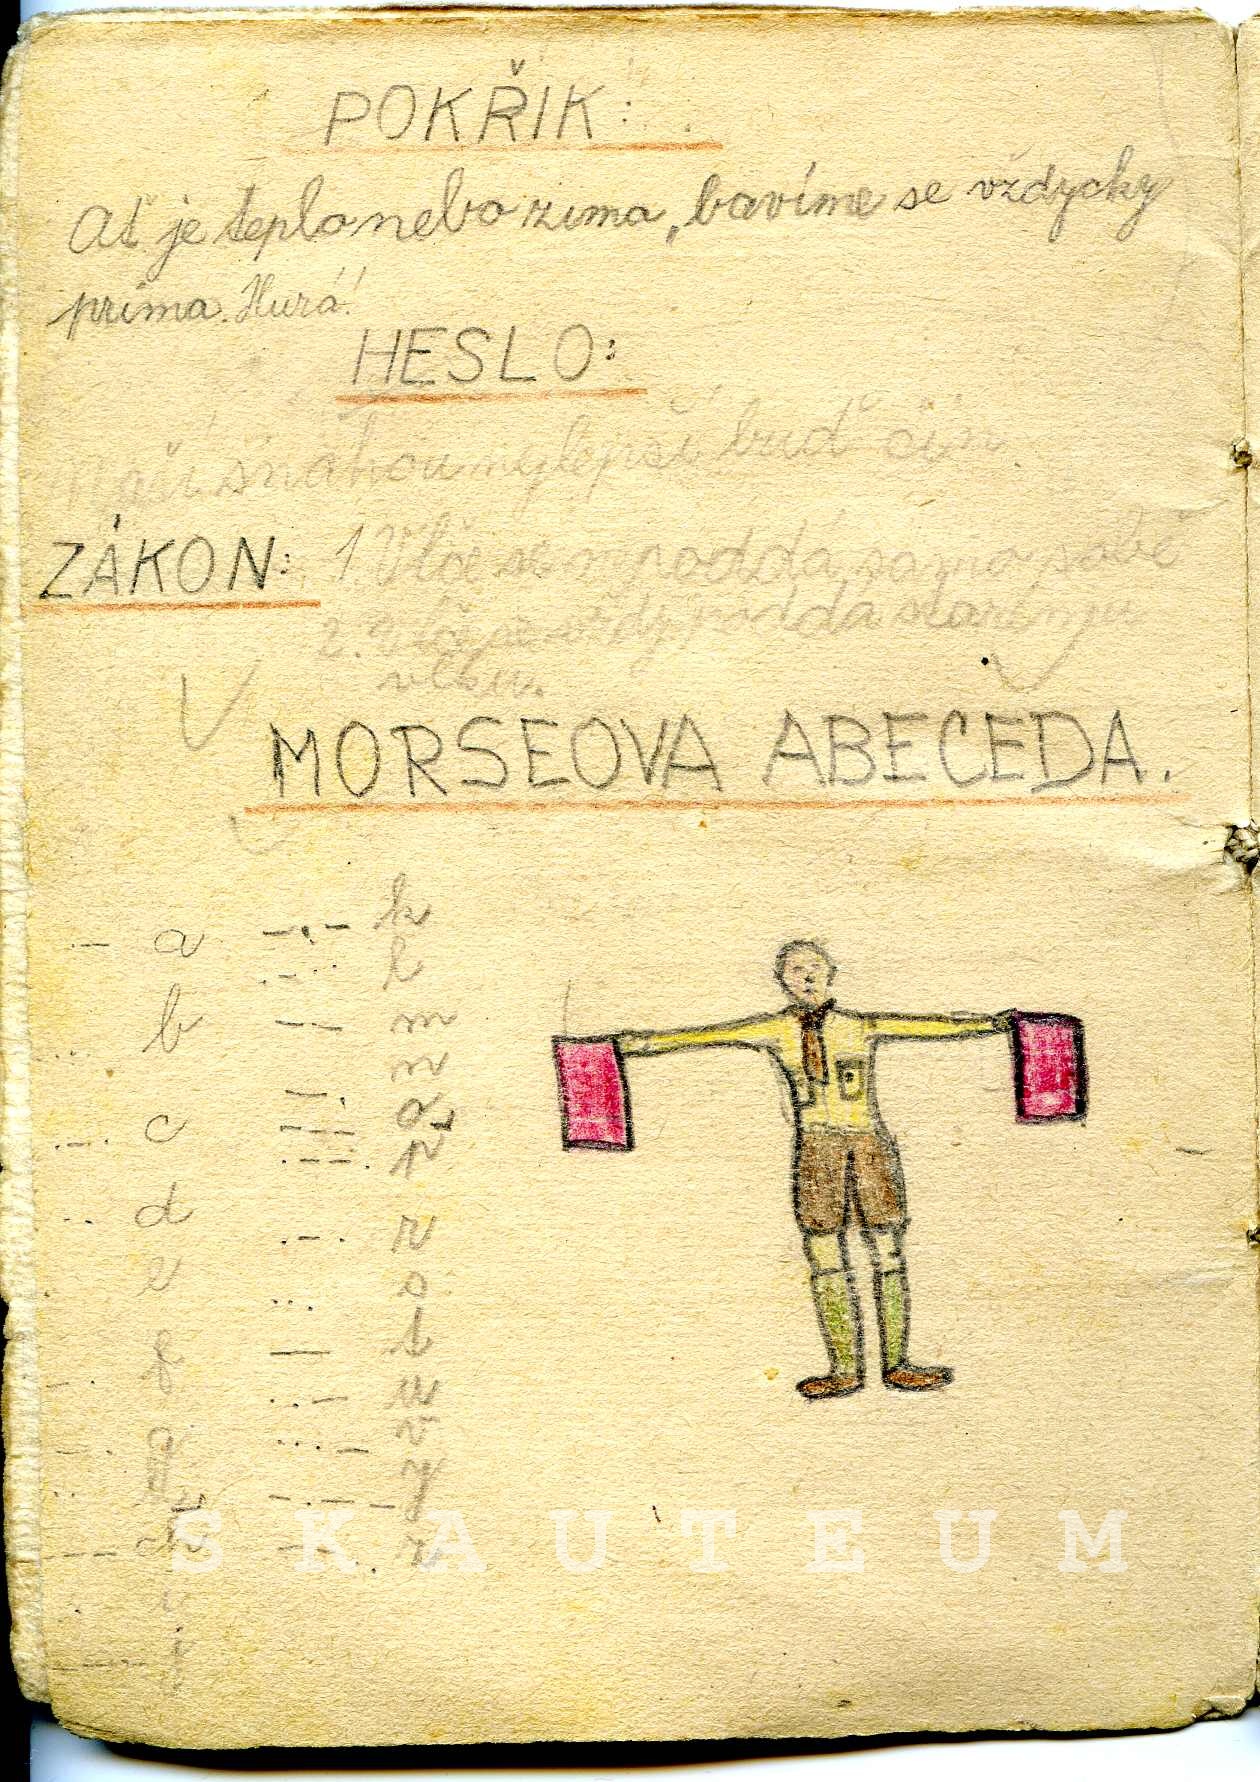 POKŘIK:
Ať je teplo nebo zima, bavíme se vždycky
prima. Hurá!
HESLO:
Naší snahou nejlepší buď čin
ZÁKON: 1. Vlče se nepoddá samo sobě
2. Vlče se vždy poddá starému
vlku.
MORSEOVA ABECEDA.
.- a -.- k
l
b -- m
-. n
c --- o
.--. p
d .-. r
e ... s
f - t
g ..- u
...- v
h -.-- y
ch --.. z
i
.--- j
SKAUTEUM